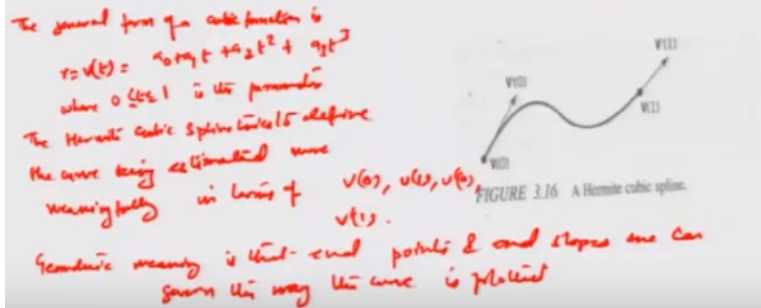 The general form of a cubic function is
r = V(t) = a₀+a₁t +a₂t² + a₃t³
where 0 ≤t≤ 1 is the parameter
The Hermite cubic spline
the curve being estimated more
meaningfully in terms of V(0), V(1), V'(0),
V'(1).
Geometric meaning is that end points & end slopes one can
govern the way the curve is plotted
V'(0)
V'(1)
V(1)
V(0)
FIGURE 3.16 A Hermite cubic spline.